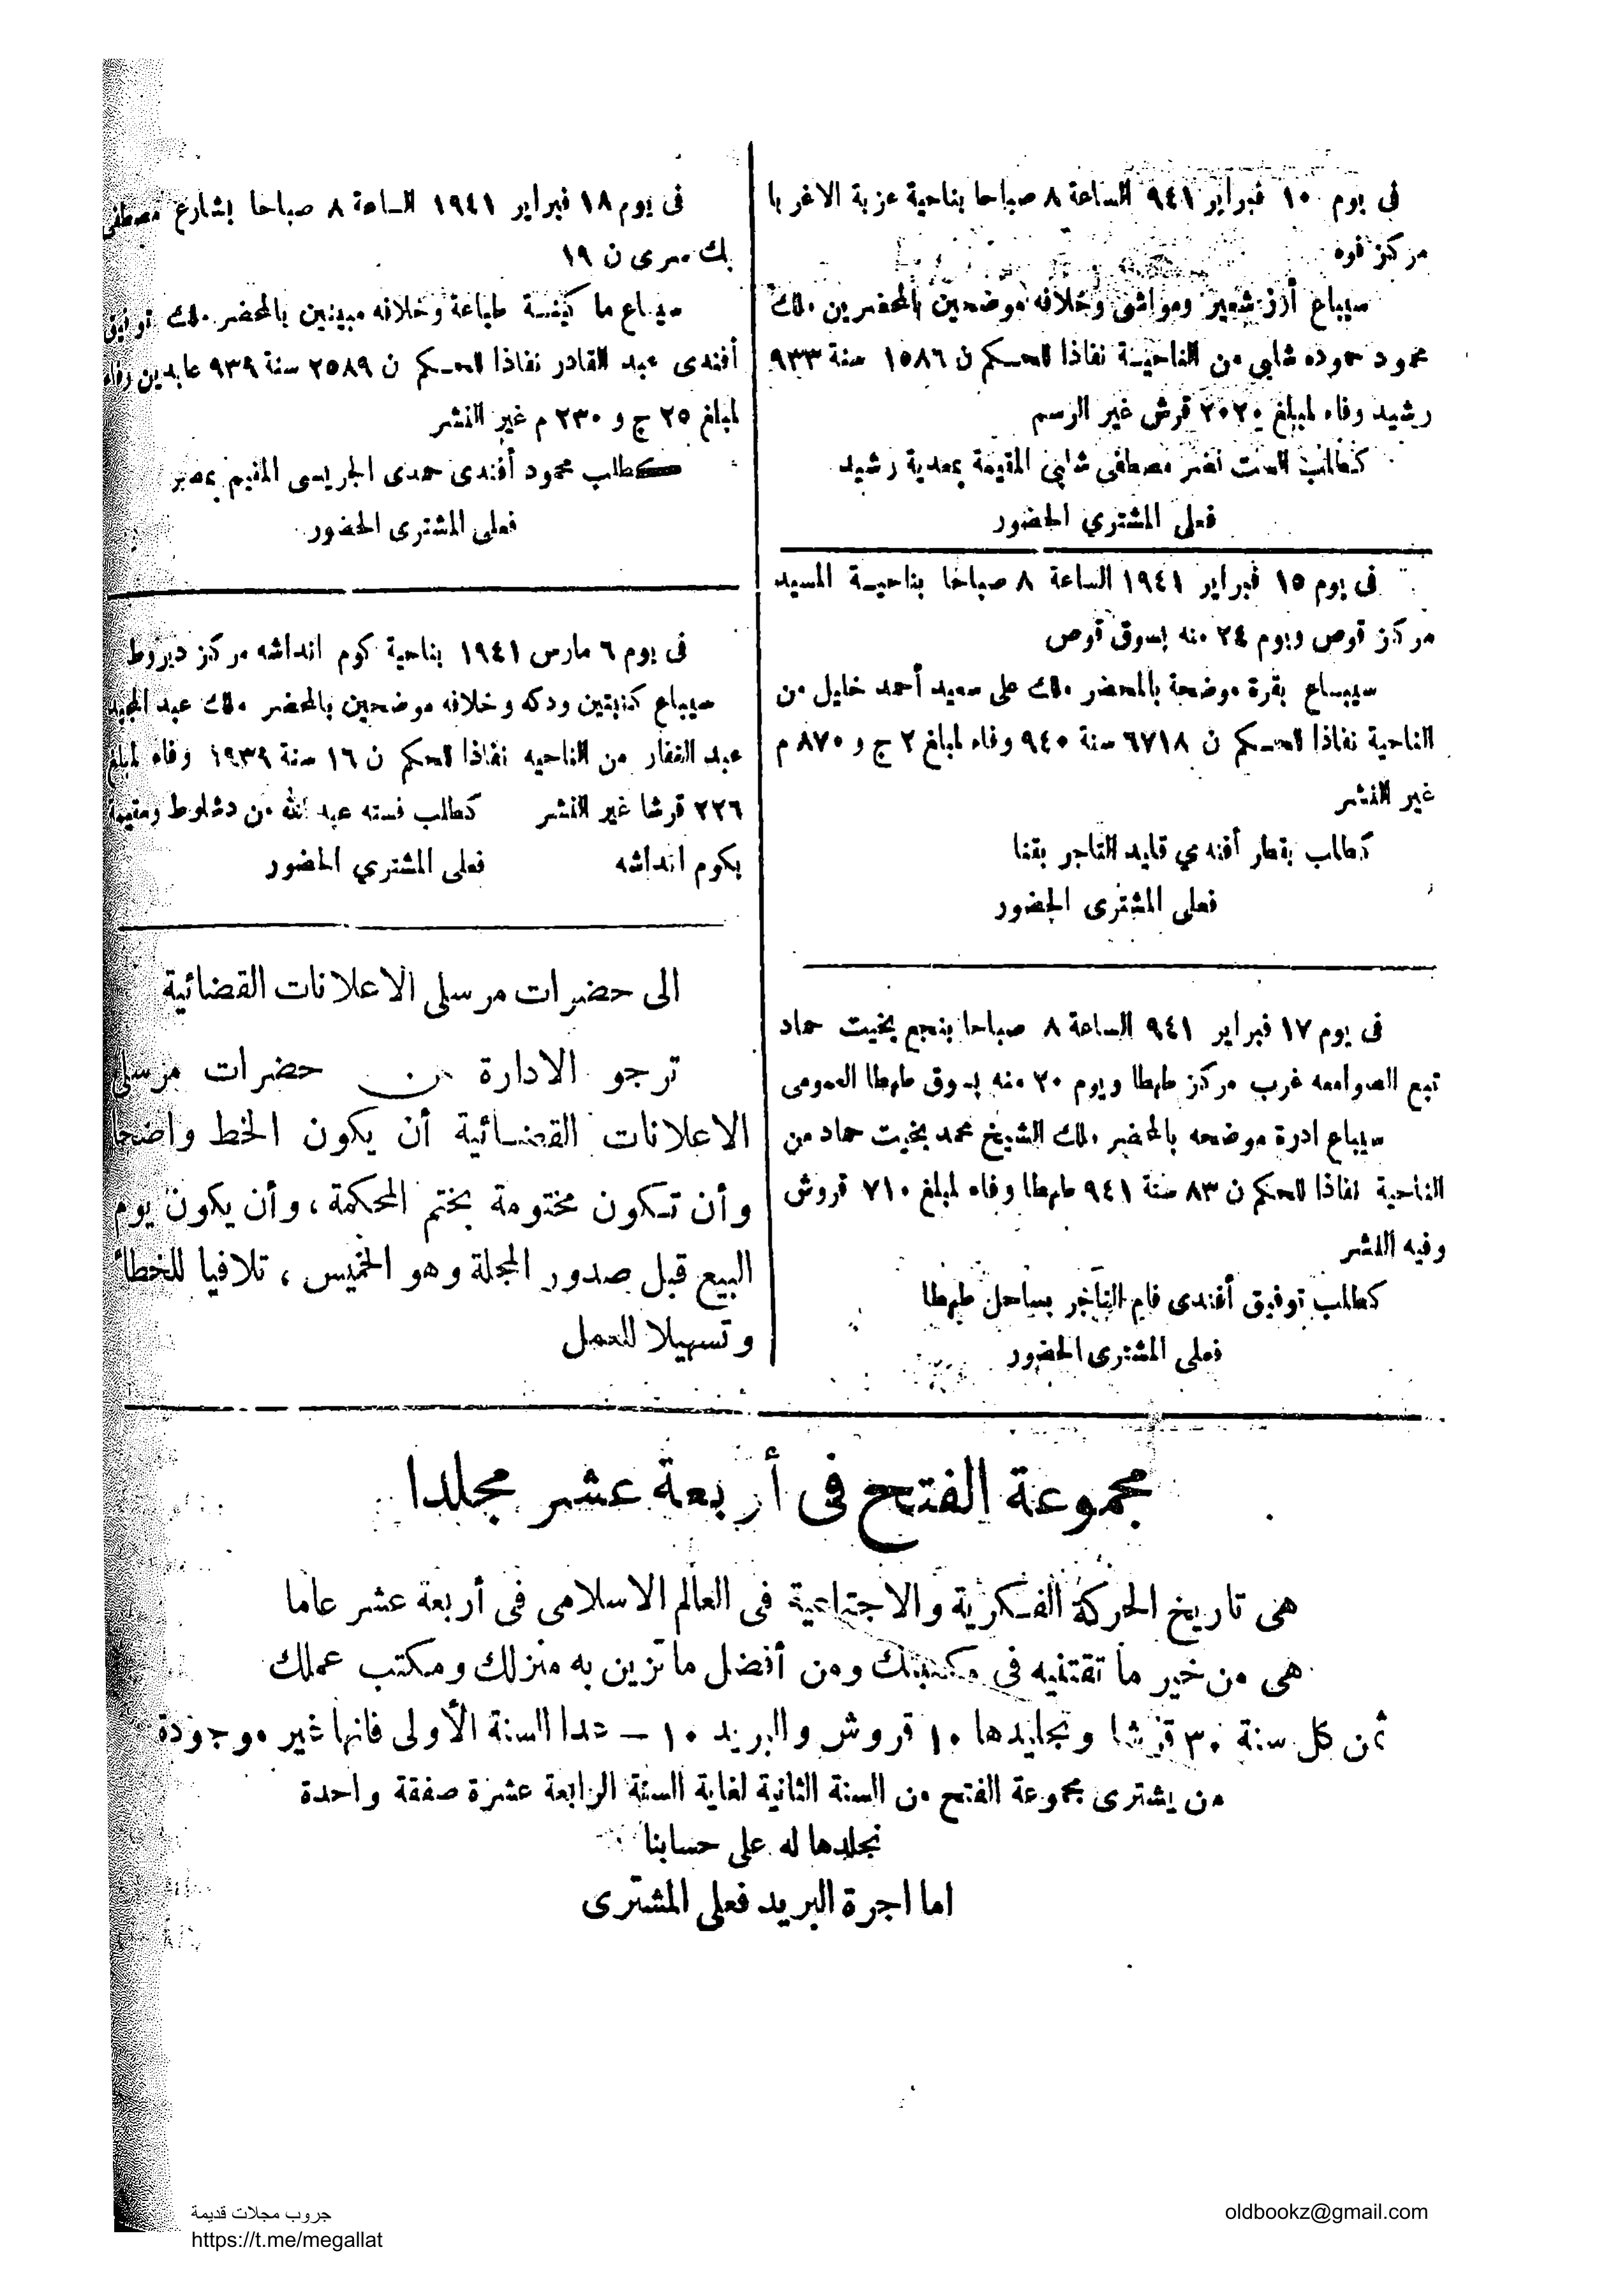 فى يوم ١٠ فبراير ٩٤١ الساعة ٨ صباحا بناحية عزبة الاغربا
مركز فوه
سيباع أرز شعير ومواشى وخلافه موضحين بالمحضرين ملك
محمود حموده شلبي من الناحيـة نفاذا للحـكم ن ١٥٨٦ سنة ٩٣٣
رشيد وفاء لمبلغ ٢٠٢٠ قرش غير الرسم
كطلب الست نضر مصطفى شلبى المقيمة بمعدية رشيد
فعلى المشتري الحضور
فى يوم ١٥ فبراير ١٩٤١ الساعة ٨ صباحا بناحيـة المسيد
مركز قوص ويوم ٢٤ منه بسوق قوص
سيبـاع بقرة موضحة بالمحضر ملك على سعيد أحمد خليل من
الناحية نفاذا للحـكم ن ٦٧١٨ سنة ٩٤٠ وفاء لمبلغ ٢ ج و ٨٧٠ م
غير النشر
كطلب بقطر أفندي قليد التاجر بقنا
فعلى المشترى الحضور
فى يوم ١٧ فبراير ٩٤١ الساعة ٨ صباحا بنجع بخيت حماد
تبع الصوامعه غرب مركز طهطا ويوم ٢٠ منه بسوق طهطا العمومى
سيباع اذرة موضحه بالمحضر ملك الشيخ محمد بخيت حماد من
الناحية نفاذا للحكم ن ٨٣ سنة ٩٤١ طهطا وفاء لمبلغ ٧١٠ قروش
وفيه النشر
كطلب توفيق أفندى فام التاجر بساحل طهطا
فعلى المشترى الحضور
فى يوم ١٨ فبراير ١٩٤١ الساعة ٨ صباحا بشارع مصطفى
بك سرى ن ١٩
سيباع ماكينـة طباعة وخلافه مبينين بالمحضر ملك توفيق
أفندى عبد القادر نفاذا للحـكم ن ٢٥٨٩ سنة ٩٣٩ عابدين وفاء
لمبلغ ٢٥ ج و ٢٣٠ م غير النشر
كطلب محمود أفندى حمدى الجريسى المقيم بمصر
فعلى المشترى الحضور
فى يوم ٦ مارس ١٩٤١ بناحية كوم انداشه مركز ديروط
سيباع كنبتين ودكه وخلافه موضحين بالمحضر ملك عبد المجيد
عبد الغفار من الناحيه نفاذا للحكم ن ١٦ سنة ١٩٣٩ وفاء لمبلغ
٢٢٦ قرشا غير النشر كطلب فسته عبد الله من دشلوط ومقيمة
بكوم انداشه فعلى المشتري الحضور
الى حضرات مرسلى الاعلانات القضائية
ترجو الادارة من حضرات مرسلى
الاعلانات القضـائية أن يكون الخط واضحا
وأن تـكون مختومة بختم المحكمة، وأن يكون يوم
البيع قبل صدور المجلة وهو الخميس، تلافيا للخطأ
وتسهيلا للعمل
مجموعة الفتح فى أربعة عشر مجلدا
هى تاريخ الحركة الفـكرية والاجتماعية فى العالم الاسلامى فى أربعة عشر عاما
هى من خير ما تقتنيه فى مكتبتك ومن أفضل ما تزين به منزلك ومكتب عملك
ثمن كل سنة ٣٠ قرشا وتجليدها ١٠ قروش والبريد ١٠ — عدا السنة الأولى فانها غير موجودة
من يشترى مجموعة الفتح من السنة الثانية لغاية السنة الرابعة عشرة صفقة واحدة
نجلدها له على حسابنا
اما اجرة البريد فعلى المشترى
جروب مجلات قديمة
https://t.me/megallat
oldbookz@gmail.com